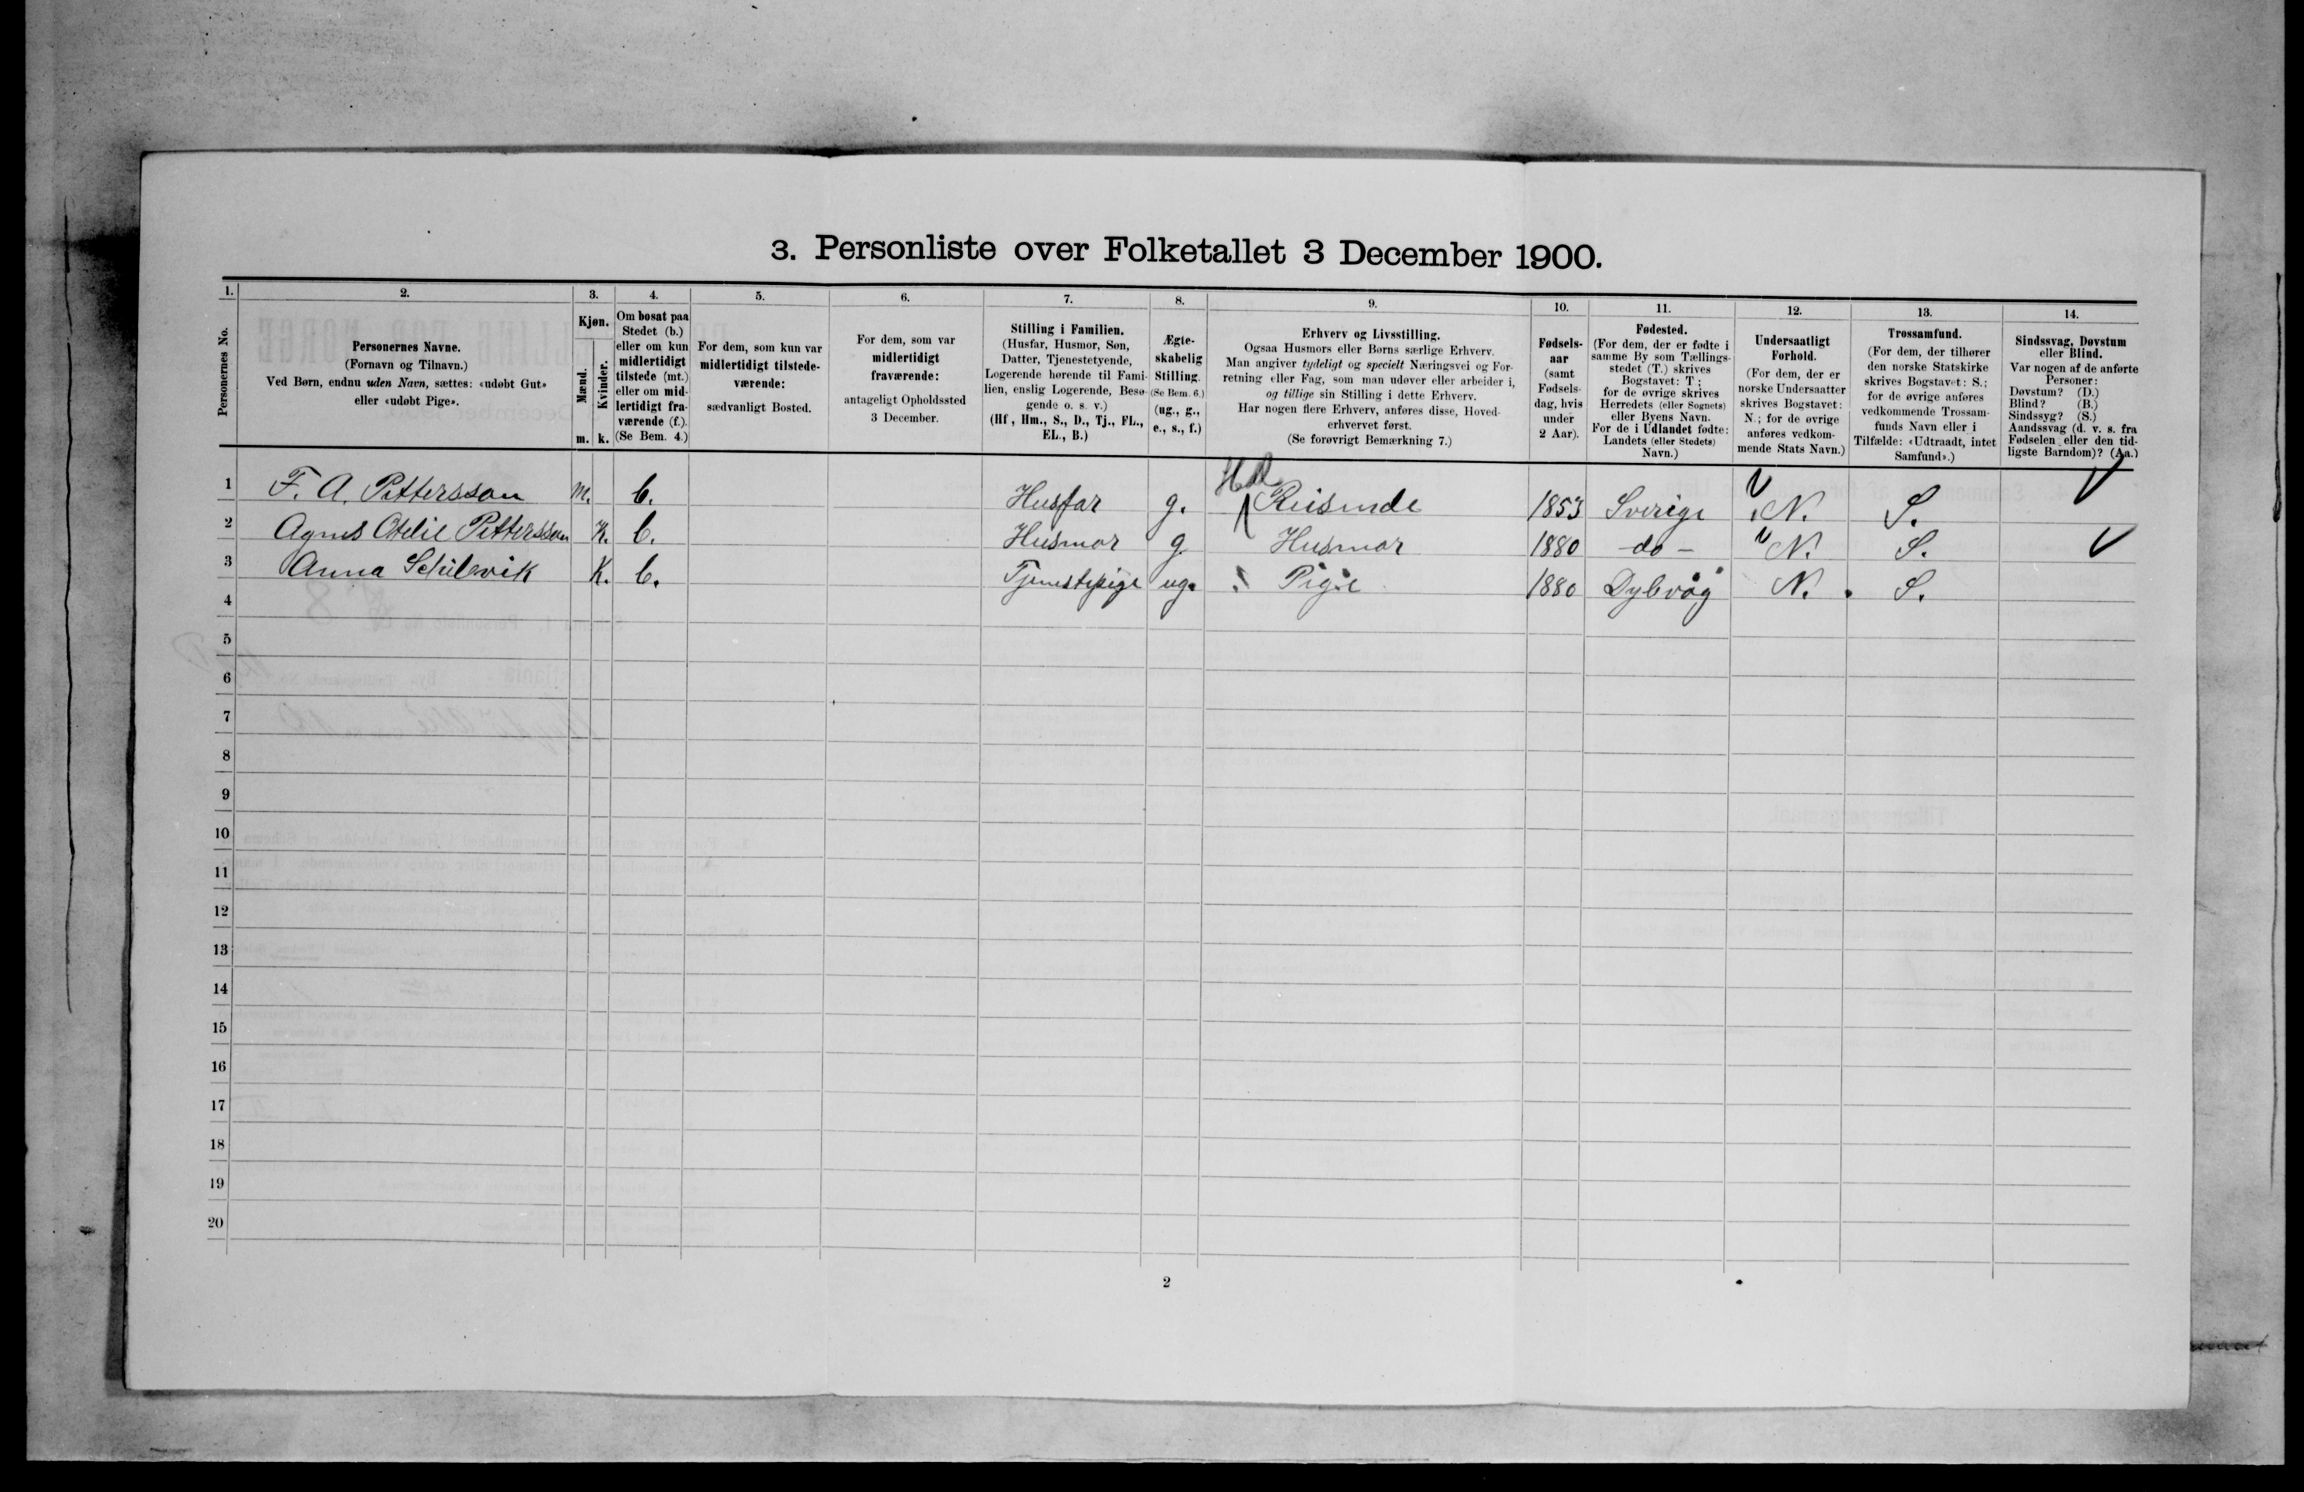 3. Personliste over Folketallet 3 December 1900.
1. 2. 3. 4. 5. 6. 7. 8. 9. 10. 11. 12. 13. 14.
Personernes No.
Personernes Navne.
(Fornavn og Tilnavn.)
Ved Børn, endnu uden Navn, sættes: «udøbt Gut»
eller «udøbt Pige».
Kjøn.
Mænd.
Kvinder.
m. k.
Om bosat paa
Stedet (b.)
eller om kun
midlertidigt
tilstede (mt.)
eller om mid-
lertidigt fra-
værende (f.).
(Se Bem. 4.)
For dem, som kun var
midlertidigt tilstede-
værende:
sædvanligt Bosted.
For dem, som var
midlertidigt
fraværende:
antageligt Opholdssted
3 December.
Stilling i Familien.
(Husfar, Husmor, Søn,
Datter, Tjenestetyende,
Logerende hørende til Fami-
lien, enslig Logerende, Besø-
gende o. s. v.)
(Hf., Hm., S., D., Tj., FL.,
EL., B.)
Ægte-
skabelig
Stilling.
(Se Bem. 6.)
(ug., g.,
e., s., f.)
Erhverv og Livsstilling.
Ogsaa Husmors eller Børns særlige Erhverv.
Man angiver tydeligt og specielt Næringsvei og For-
retning eller Fag, som man udøver eller arbeider i,
og tillige sin Stilling i dette Erhverv.
Har nogen flere Erhverv, anføres disse, Hoved-
erhvervet først.
(Se forøvrigt Bemærkning 7.)
Fødsels-
aar
(samt
Fødsels-
dag, hvis
under
2 Aar).
Fødested.
(For dem, der er fødte i
samme By som Tællings-
stedet (T.) skrives
Bogstavet: T;
for de øvrige skrives
Herredets (eller Sognets)
eller Byens Navn.
For de i Udlandet fødte:
Landets (eller Stedets)
Navn.)
Undersaatligt
Forhold.
(For dem, der er
norske Undersaatter
skrives Bogstavet:
N.; for de øvrige
anføres vedkom-
mende Stats Navn.)
Trossamfund.
(For dem, der tilhører
den norske Statskirke
skrives Bogstavet: S.;
for de øvrige anføres
vedkommende Trossam-
funds Navn eller i
Tilfælde: «Udtraadt, intet
Samfund».)
Sindssvag, Døvstum
eller Blind.
Var nogen af de anførte
Personer:
Døvstum? (D.)
Blind? (B.)
Sindssyg? (S.)
Aandssvag (d. v. s. fra
Fødselen eller den tid-
ligste Barndom)? (Aa.)
Hdl
1 F. A. Pettersson m. b. Husfar g. Reisende 1853 Sverige N. S.
2 Agnes Otelie Pettersson K. b. Husmor g Husmor 1880 -do- N. S.
3 Anna Schilevik K. b. Tjenestepige ug. Pige 1880 Dybvåg N. S.
4
5
6
7
8
9
10
11
12
13
14
15
16
17
18
19
20
2